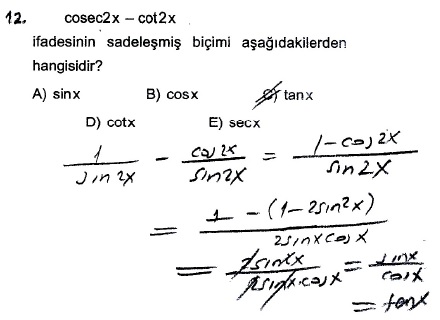 12. cosec2x – cot2x
ifadesinin sadeleşmiş biçimi aşağıdakilerden
hangisidir?
A) sinx B) cosx C) tanx
D) cotx E) secx
1/sin2x - cos2x/sin2x = 1-cos2x/sin2x
= 1-(1-2sin²x)/2sinxcosx
= 2sin²x/2sinx.cosx = sinx/cosx
= tanx